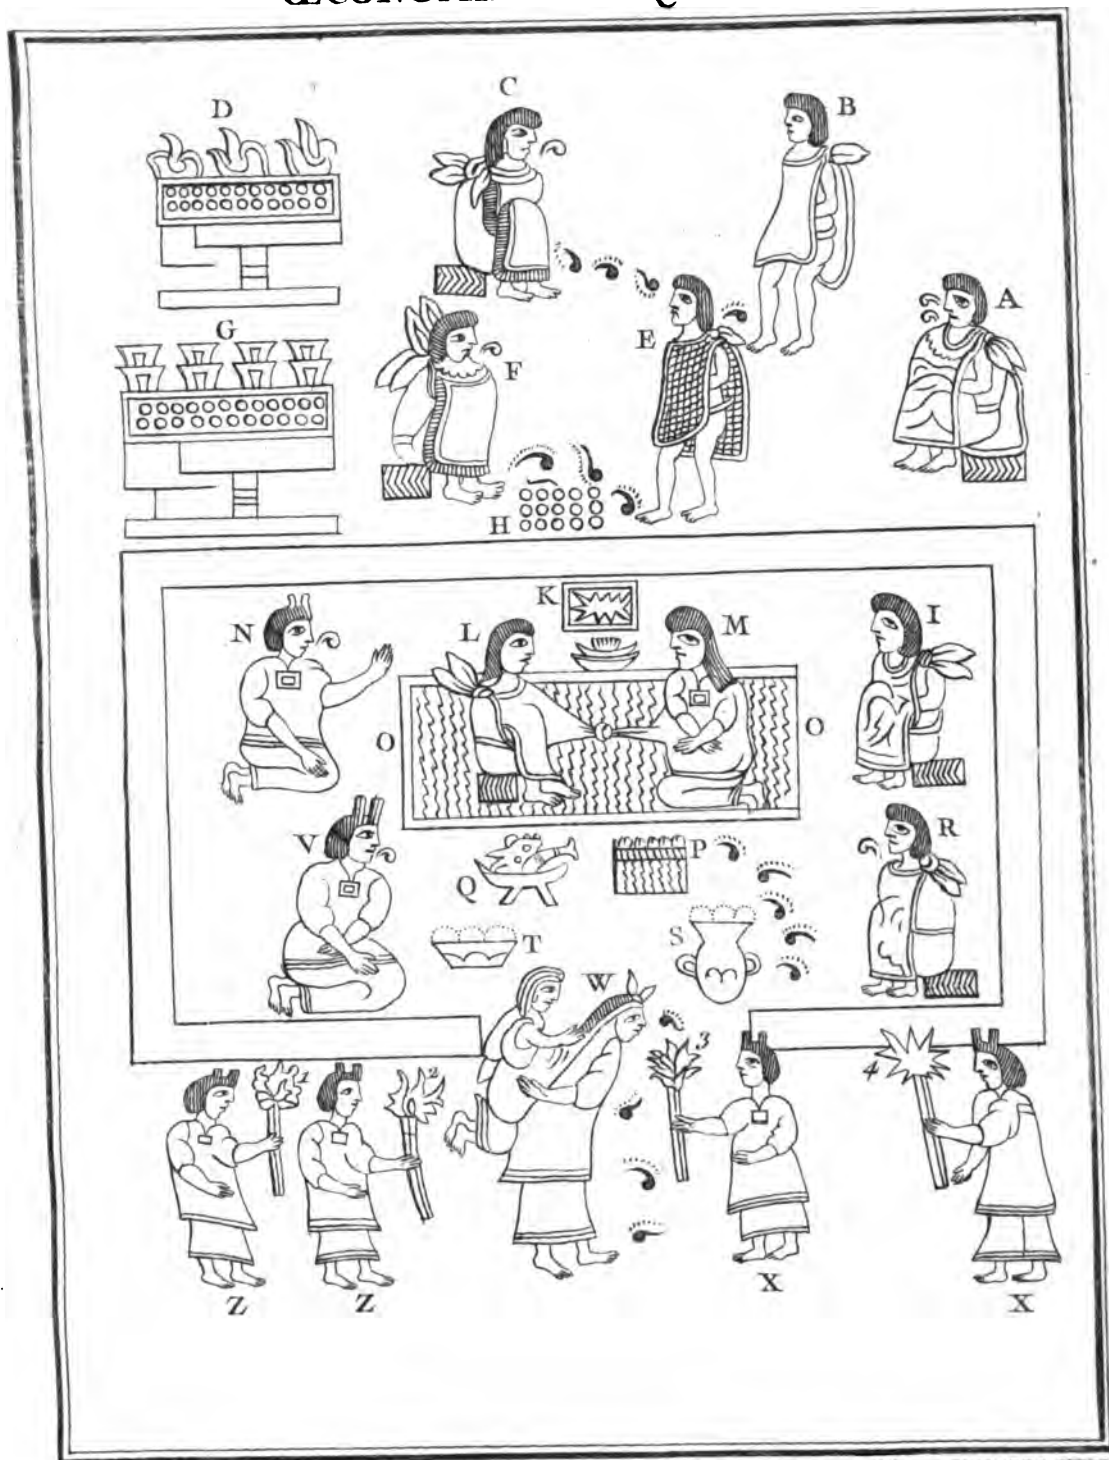 D C B
A
G
E
F
H
K
N L M I
O O
V R
P
Q
T S
W
1 2 3
4
Z Z X X